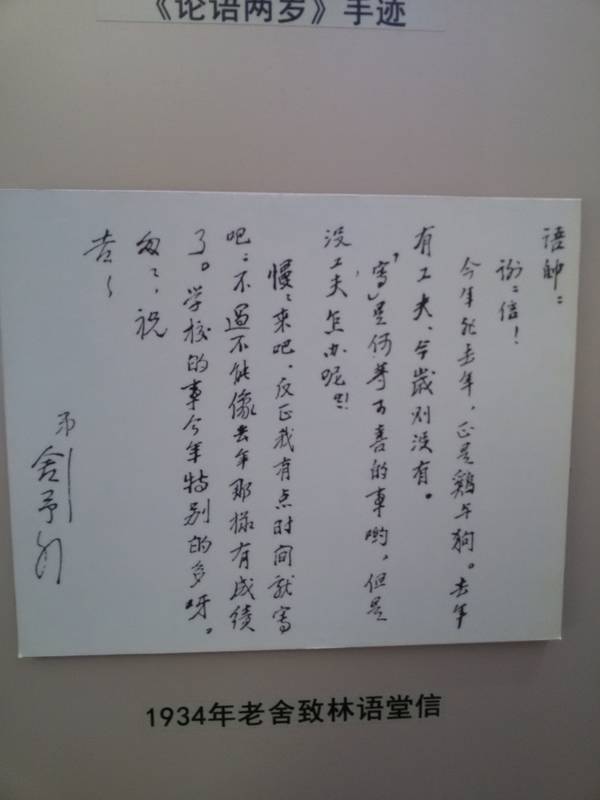 《论语两岁》手迹
语帅：
谢〻信！
今年 去年，正是鷄 狗。去年
有工夫、今歲则没有。
“寫”是何等可喜的事哟，但是
没工夫怎办呢？！
慢〻来吧，反正我有点时间就寫
吧；不過不能像去年那樣有成績
了。学校的事今年特别的多呀。
匆〻，祝
吉〻
弟舍予
1934年老舍致林语堂信